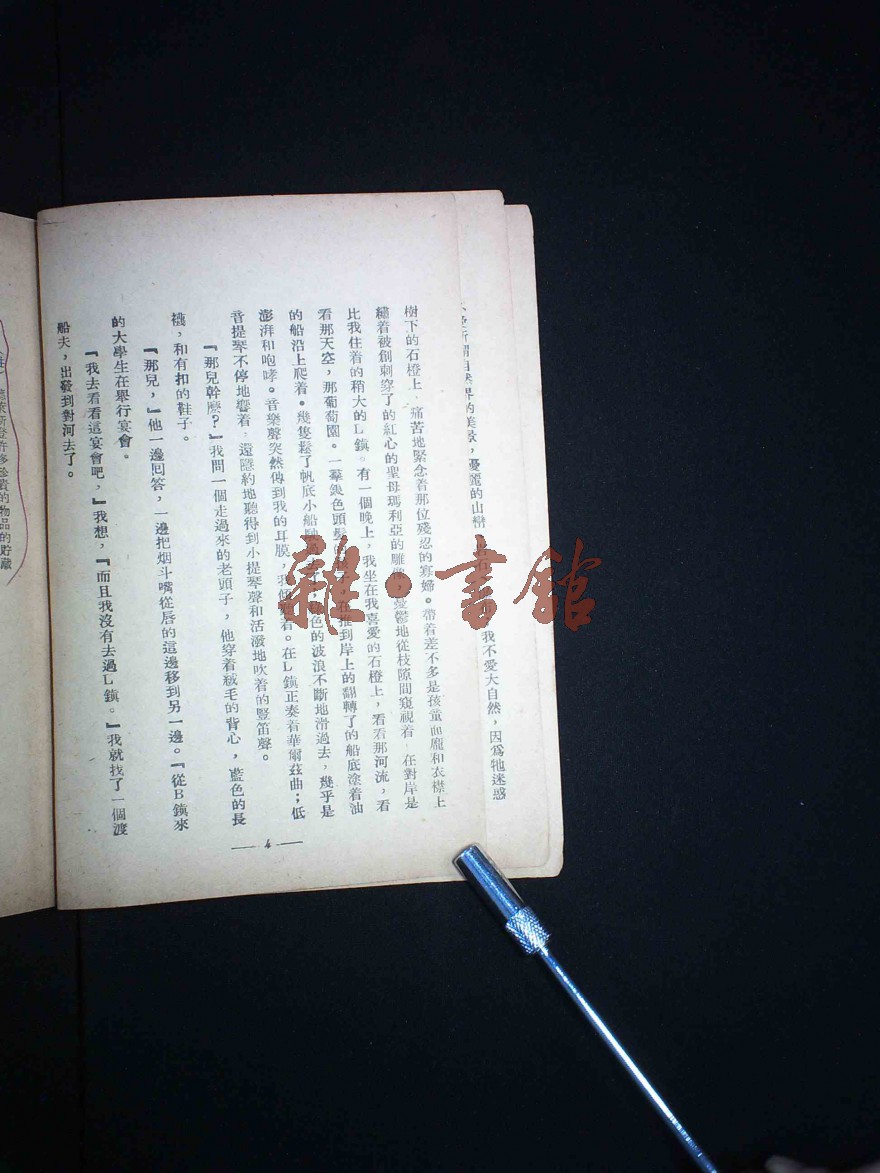 所謂自然界的美景，憂麗的山巒
我不愛大自然，因爲牠迷惑
樹下的石櫈上，痛苦地緊念着那位殘忍的寡婦。帶着差不多是孩童面龐和衣襟上
繡着被創刺穿了的紅心的聖母瑪利亞的雕像憂鬱地從枝隙間窺視着，在對岸是
比我住着的稍大的L鎮。有一個晚上，我坐在我喜愛的石櫈上，看看那河流，看
看那天空，那葡萄園。一羣幾色頭髮在推到岸上的翻轉了的船底塗着油
的船沿上爬着。幾隻鬆了帆底小船色的波浪不斷地滑過去，幾乎是
澎湃和咆哮。音樂聲突然傳到我的耳膜，我傾聽着。在L鎮正奏着華爾茲曲；低
音提琴不停地響着，還隱約地聽得到小提琴聲和活潑地吹着的豎笛聲。
『那兒幹麽？』我問一個走過來的老頭子，他穿着絨毛的背心，藍色的長
襪，和有扣的鞋子。
『那兒，』他一邊回答，一邊把烟斗嘴從唇的這邊移到另一邊。『從B鎮來
的大學生在舉行宴會。
『我去看看這宴會吧，』我想，『而且我沒有去過L鎮。』我就找了一個渡
船夫，出發到對河去了。
— 4 —
貴的物品的貯藏
雜·書館